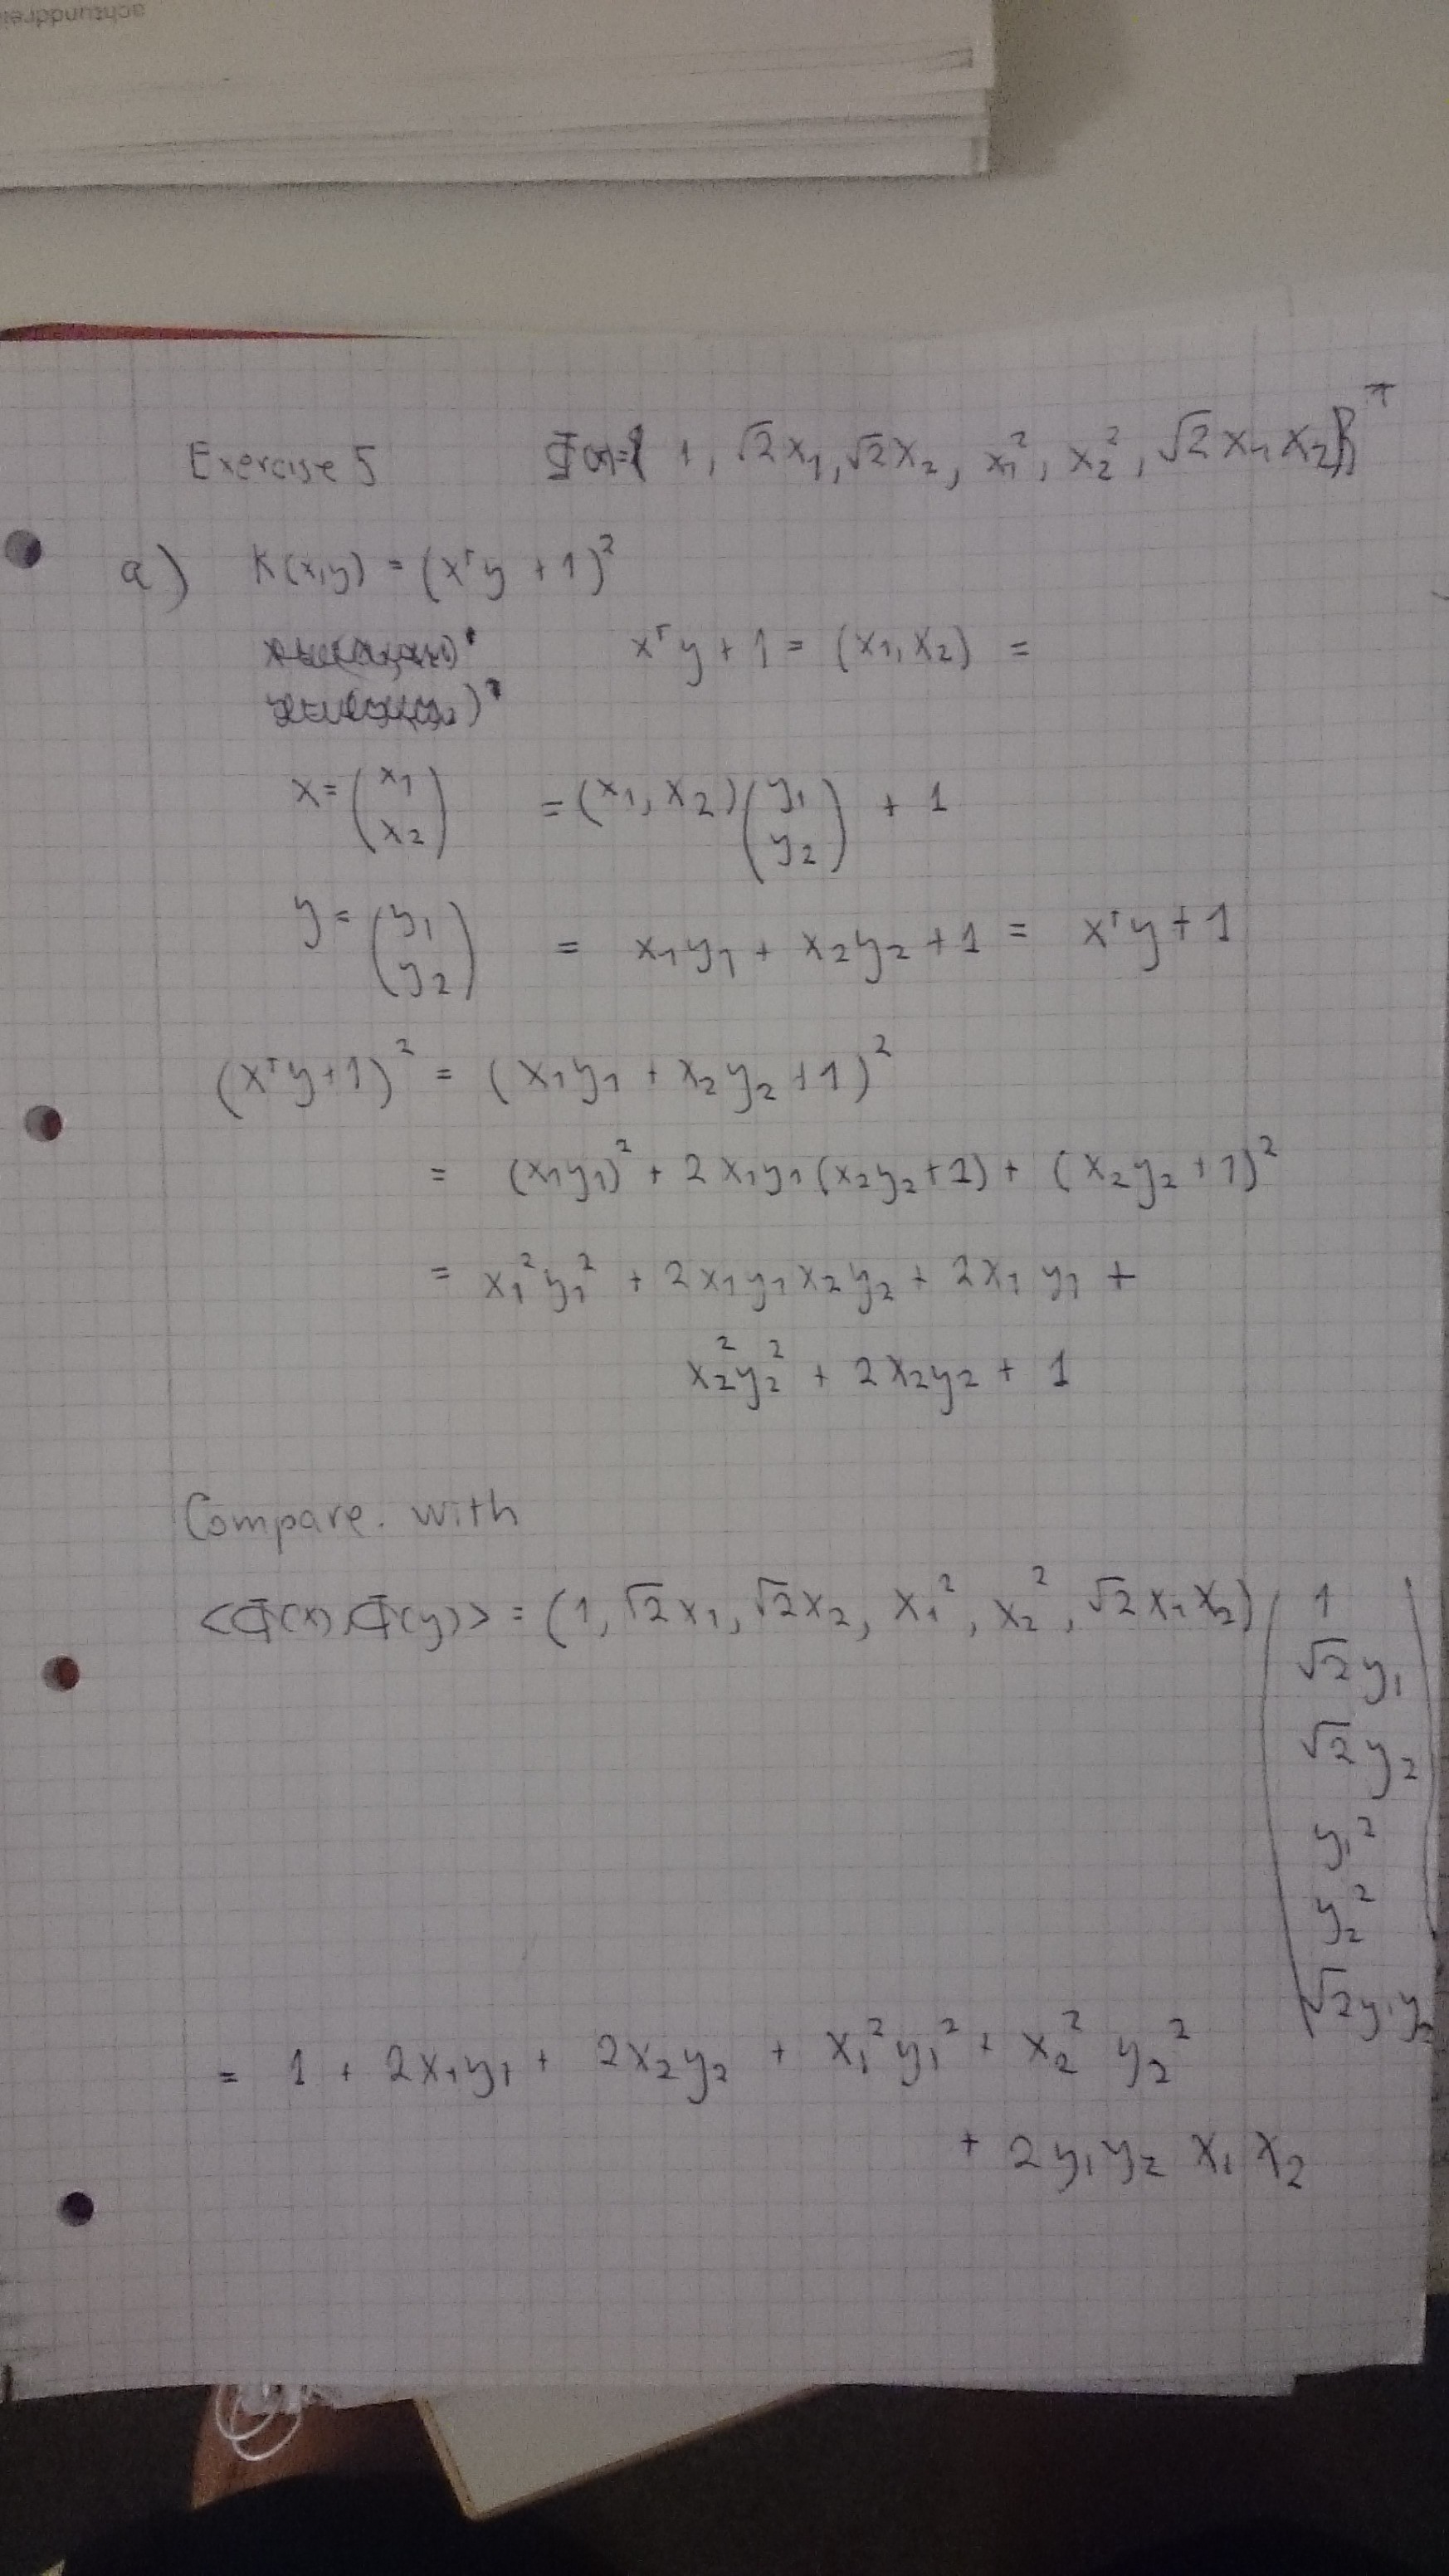 achtunddrei
Exercise 5 Φ(x)=( 1, √2x₁, √2x₂, x₁², x₂², √2x₁x₂)ᵀ
a) K(x,y) = (xᵀy + 1)²
xᵀy + 1 = (x₁, x₂) =
x = (x₁ x₂) = (x₁, x₂)(y₁ y₂) + 1
y = (y₁ y₂) = x₁y₁ + x₂y₂ + 1 = xᵀy + 1
(xᵀy+1)² = (x₁y₁ + x₂y₂ + 1)²
= (x₁y₁)² + 2x₁y₁(x₂y₂+1) + (x₂y₂ + 1)²
= x₁²y₁² + 2x₁y₁x₂y₂ + 2x₁y₁ +
x₂²y₂² + 2x₂y₂ + 1
Compare. with
<Φ(x),Φ(y)> = (1, √2x₁, √2x₂, x₁², x₂², √2x₁x₂) 1
√2y₁
√2y₂
y₁²
y₂²
√2y₁y₂
= 1 + 2x₁y₁ + 2x₂y₂ + x₁²y₁² + x₂²y₂²
+ 2y₁y₂x₁x₂